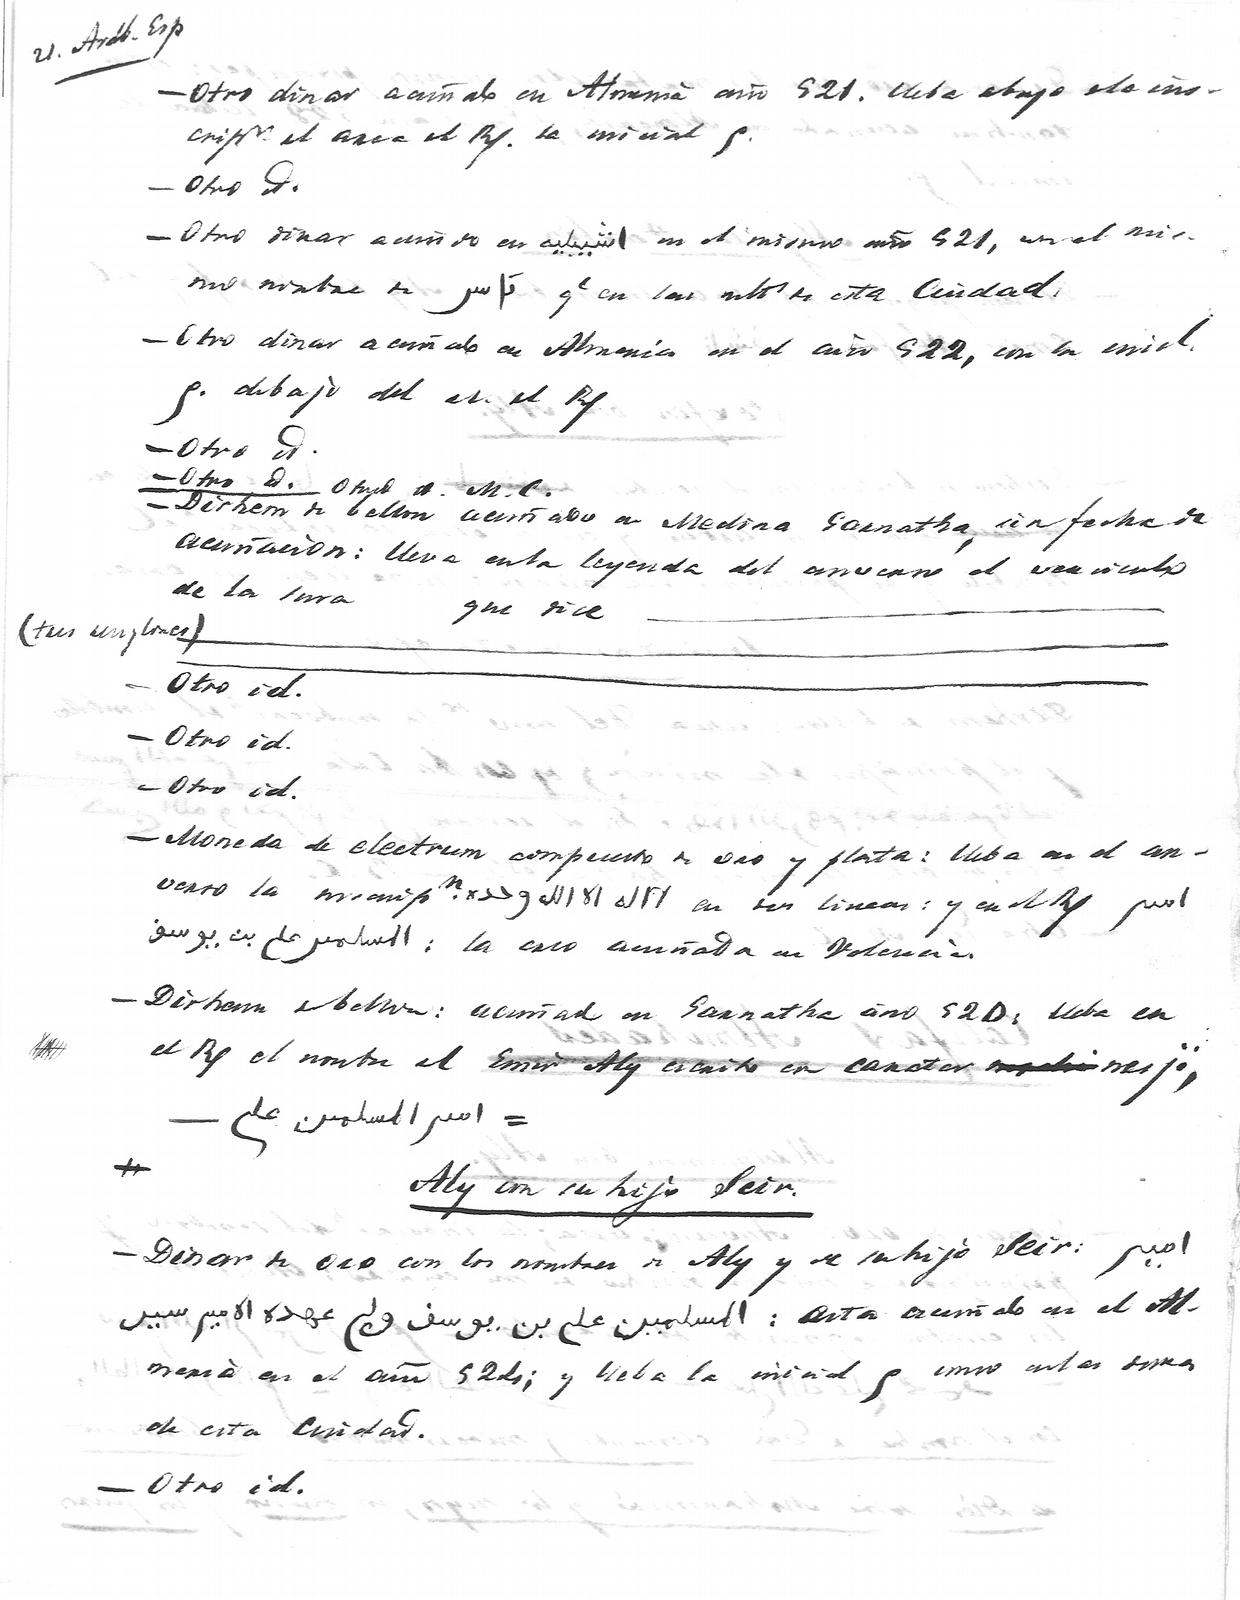 21. Aráb. Esp
— Otro dinar acuñado en Almeria año 521. lleba abajo de la ins-
crip.ⁿ del area del Rº. la inicial م.
— Otro id.
— Otro dinar acuñado en اشبيلية en el mismo año 521, con el mis-
mo nombre de قاسر qᵉ en las otˢ de esta Ciudad.
— Otro dinar acuñado en Almeria en el año 522, con la inicial
م. debajo del ar. del Rº
— Otro id.
— Otro id. Otro id. M. C.
— Dirhem de bellon acuñado en Medina Garnatha, sin fecha de
acuñacion: lleva en la leyenda del anverso el versiculo
de la sura que dice
(tres renglones)
— Otro id.
— Otro id.
— Otro id.
— Moneda de electrum compuesto de oro y plata: lleba en el an-
verso la inscripⁿ. لا اله الا الله وحده en dos lineas: y en el Rº امير
المسلمين علي بن يوسف: la creo acuñada en Valencia.
— Dirhem de bellon: acuñad en Garnatha año 520; lleba en
el Rº el nombre del Emir Aly escrito en caracter nesji,
— امير المسلمين علي =
Aly con su hijo Seir.
— Dinar de oro con los nombres de Aly y de su hijo Seir: امير
المسلمين علي بن يوسف ولي عهده الامير سير : esta acuñado en el Al-
meria en el año ; y lleba la inicial م como en las
de esta Ciudad.
— Otro id.